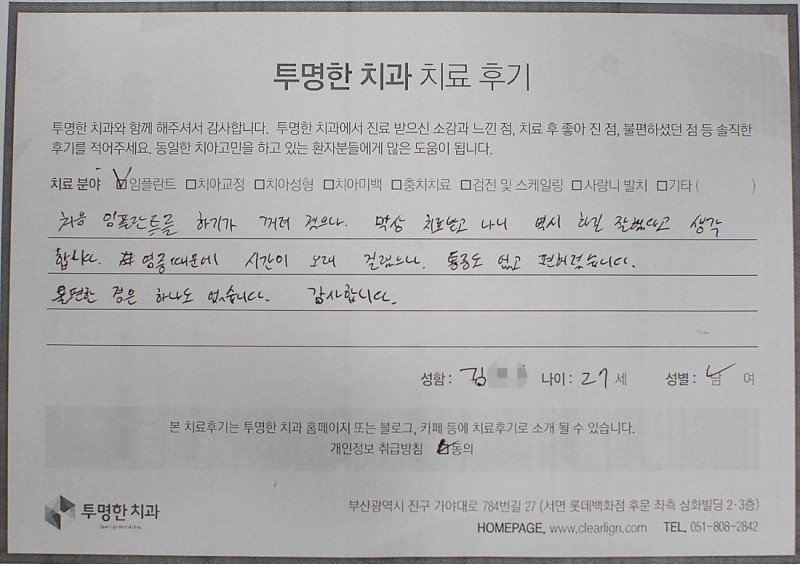 투명한 치과 치료 후기
투명한 치과와 함께 해주셔서 감사합니다. 투명한 치과에서 진료 받으신 소감과 느낀 점, 치료 후 좋아 진 점, 불편하셨던 점 등 솔직한
후기를 적어주세요. 동일한 치아고민을 하고 있는 환자분들에게 많은 도움이 됩니다.
치료 분야 ☑임플란트 □치아교정 □치아성형 □치아미백 □충치치료 □검진 및 스케일링 □사랑니 발치 □기타 ( )
처음 임플란트를 하기가 꺼려 졌으나. 막상 치료받고 나니 역시 하길 잘했다고 생각
합니다. 염증때문에 시간이 오래 걸렸으나. 통증도 없고 편하였습니다.
불편한 점은 하나도 없습니다. 감사합니다.
성함 : 김 나이 : 27 세 성별 : 남 여
본 치료후기는 투명한 치과 홈페이지 또는 블로그, 카페 등에 치료후기로 소개 될 수 있습니다.
개인정보 취급방침 ☑동의
투명한 치과
부산광역시 진구 가야대로 784번길 27 (서면 롯데백화점 후문 좌측 삼화빌딩 2·3층)
HOMEPAGE. www.clearlign.com TEL. 051-808-2842